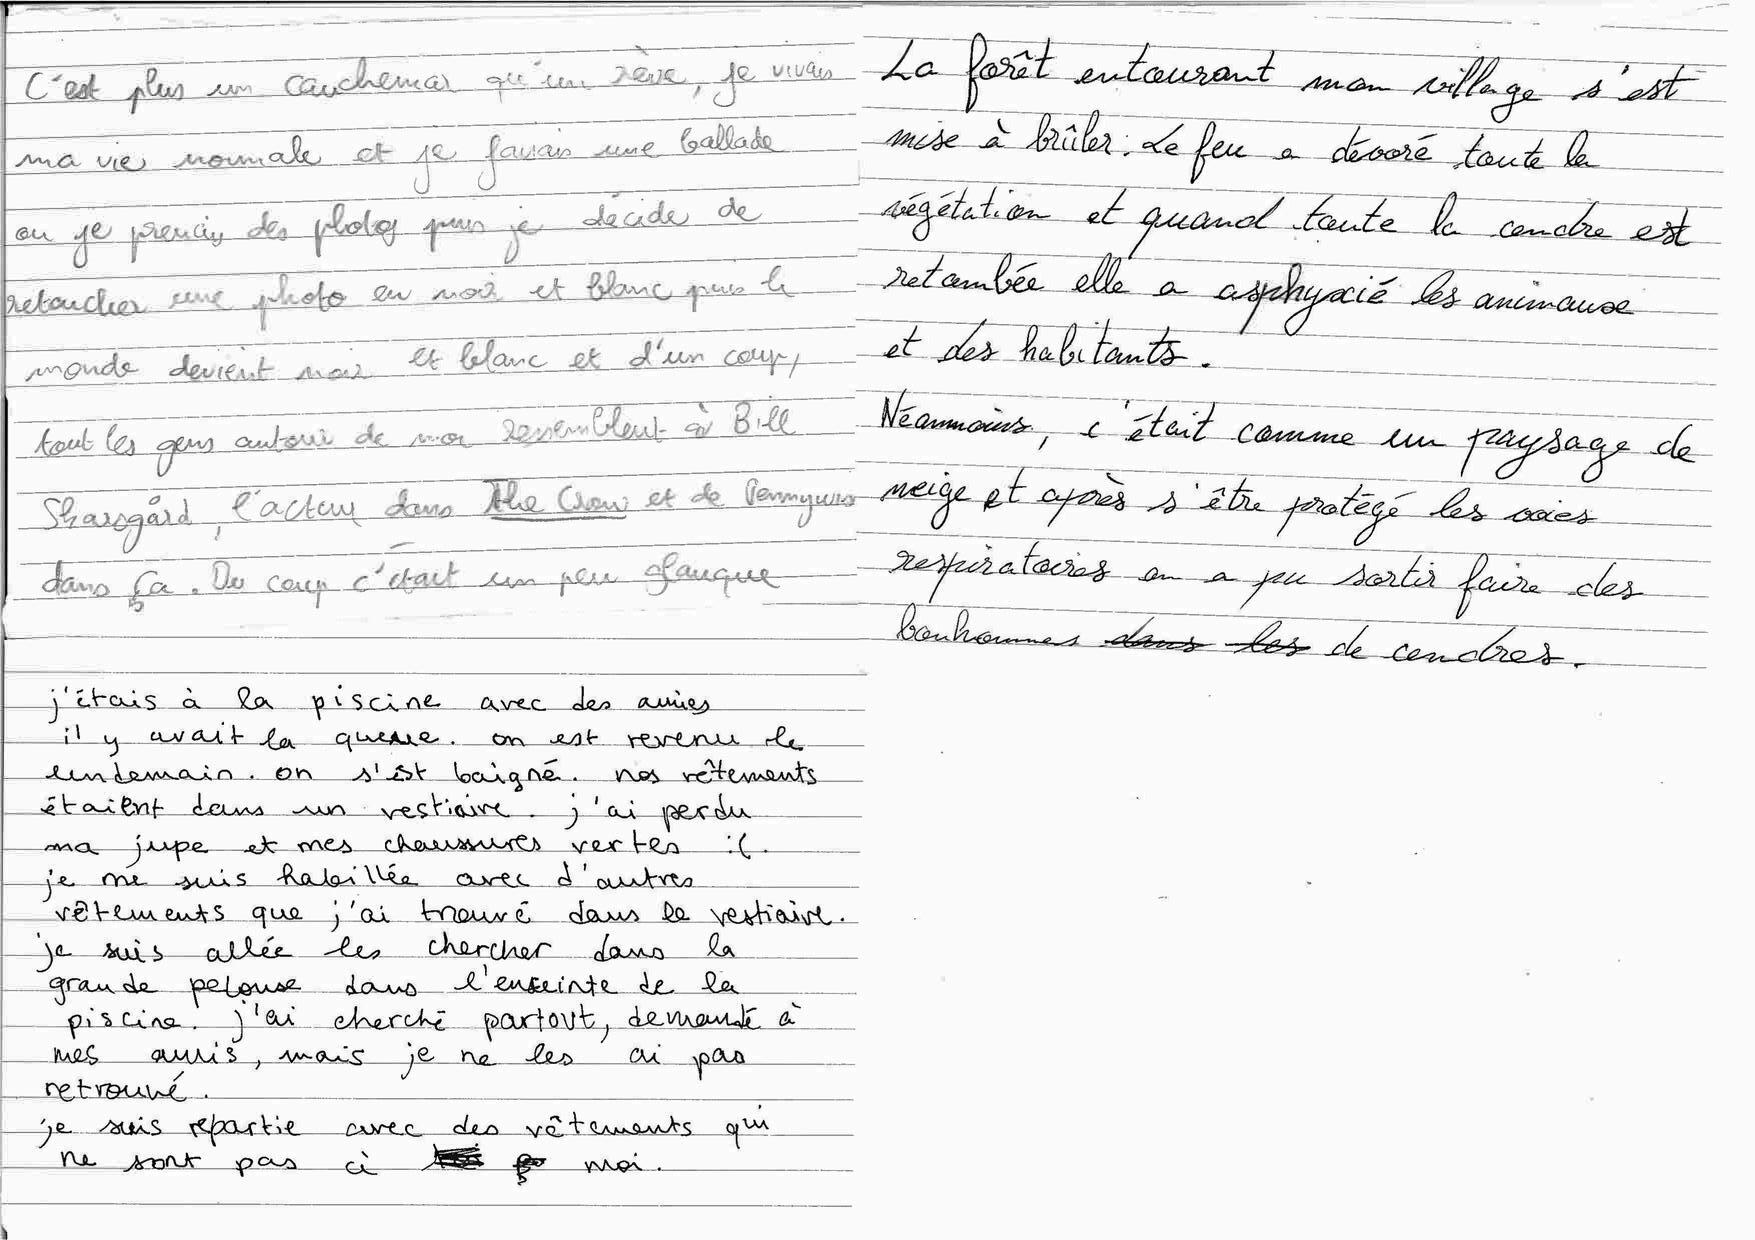 C'est plus un cauchemar qu'un rêve, je vivais
ma vie normale et je faisais une ballade
ou je prenais des photos puis je décide de
retoucher une photo en noir et blanc puis le
monde devient noir et blanc et d'un coup,
tout les gens autour de moi ressemblent à Bill
Sharsgård, l'acteur dans The Crow et de Pennywise
dans Ça. Du coup c'était un peu glauque
j'étais à la piscine avec des amies
il y avait la queue. on est revenu le
lendemain. on s'est baigné. nos vêtements
étaient dans un vestiaire. j'ai perdu
ma jupe et mes chaussures vertes :(.
je me suis habillée avec d'autres
vêtements que j'ai trouvé dans le vestiaire.
je suis allée les chercher dans la
grande pelouse dans l'enceinte de la
piscine. j'ai cherché partout, demandé à
mes amis, mais je ne les ai pas
retrouvé.
je suis repartie avec des vêtements qui
ne sont pas à moi.
La forêt entourant mon village s'est
mise à brûler. Le feu a dévoré toute la
végétation et quand toute la cendre est
retombée elle a asphyxié les animaux
et des habitants.
Néanmoins, c'était comme un paysage de
neige et après s'être protégé les voies
respiratoires on a pu sortir faire des
bonhommes dans les de cendres.